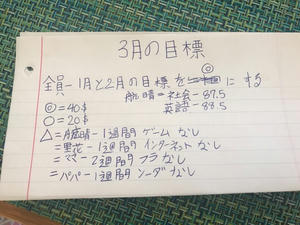 3月の目標
◎
全員-1月と2月の目標を にする
航晴=社会-87.5
英語-88.5
◎=40$
○=20$
△=航晴-1週間ゲームなし
=里花-1週間インターネットなし
=ママ-2週間フラなし
=パパ-1週間ソーダなし